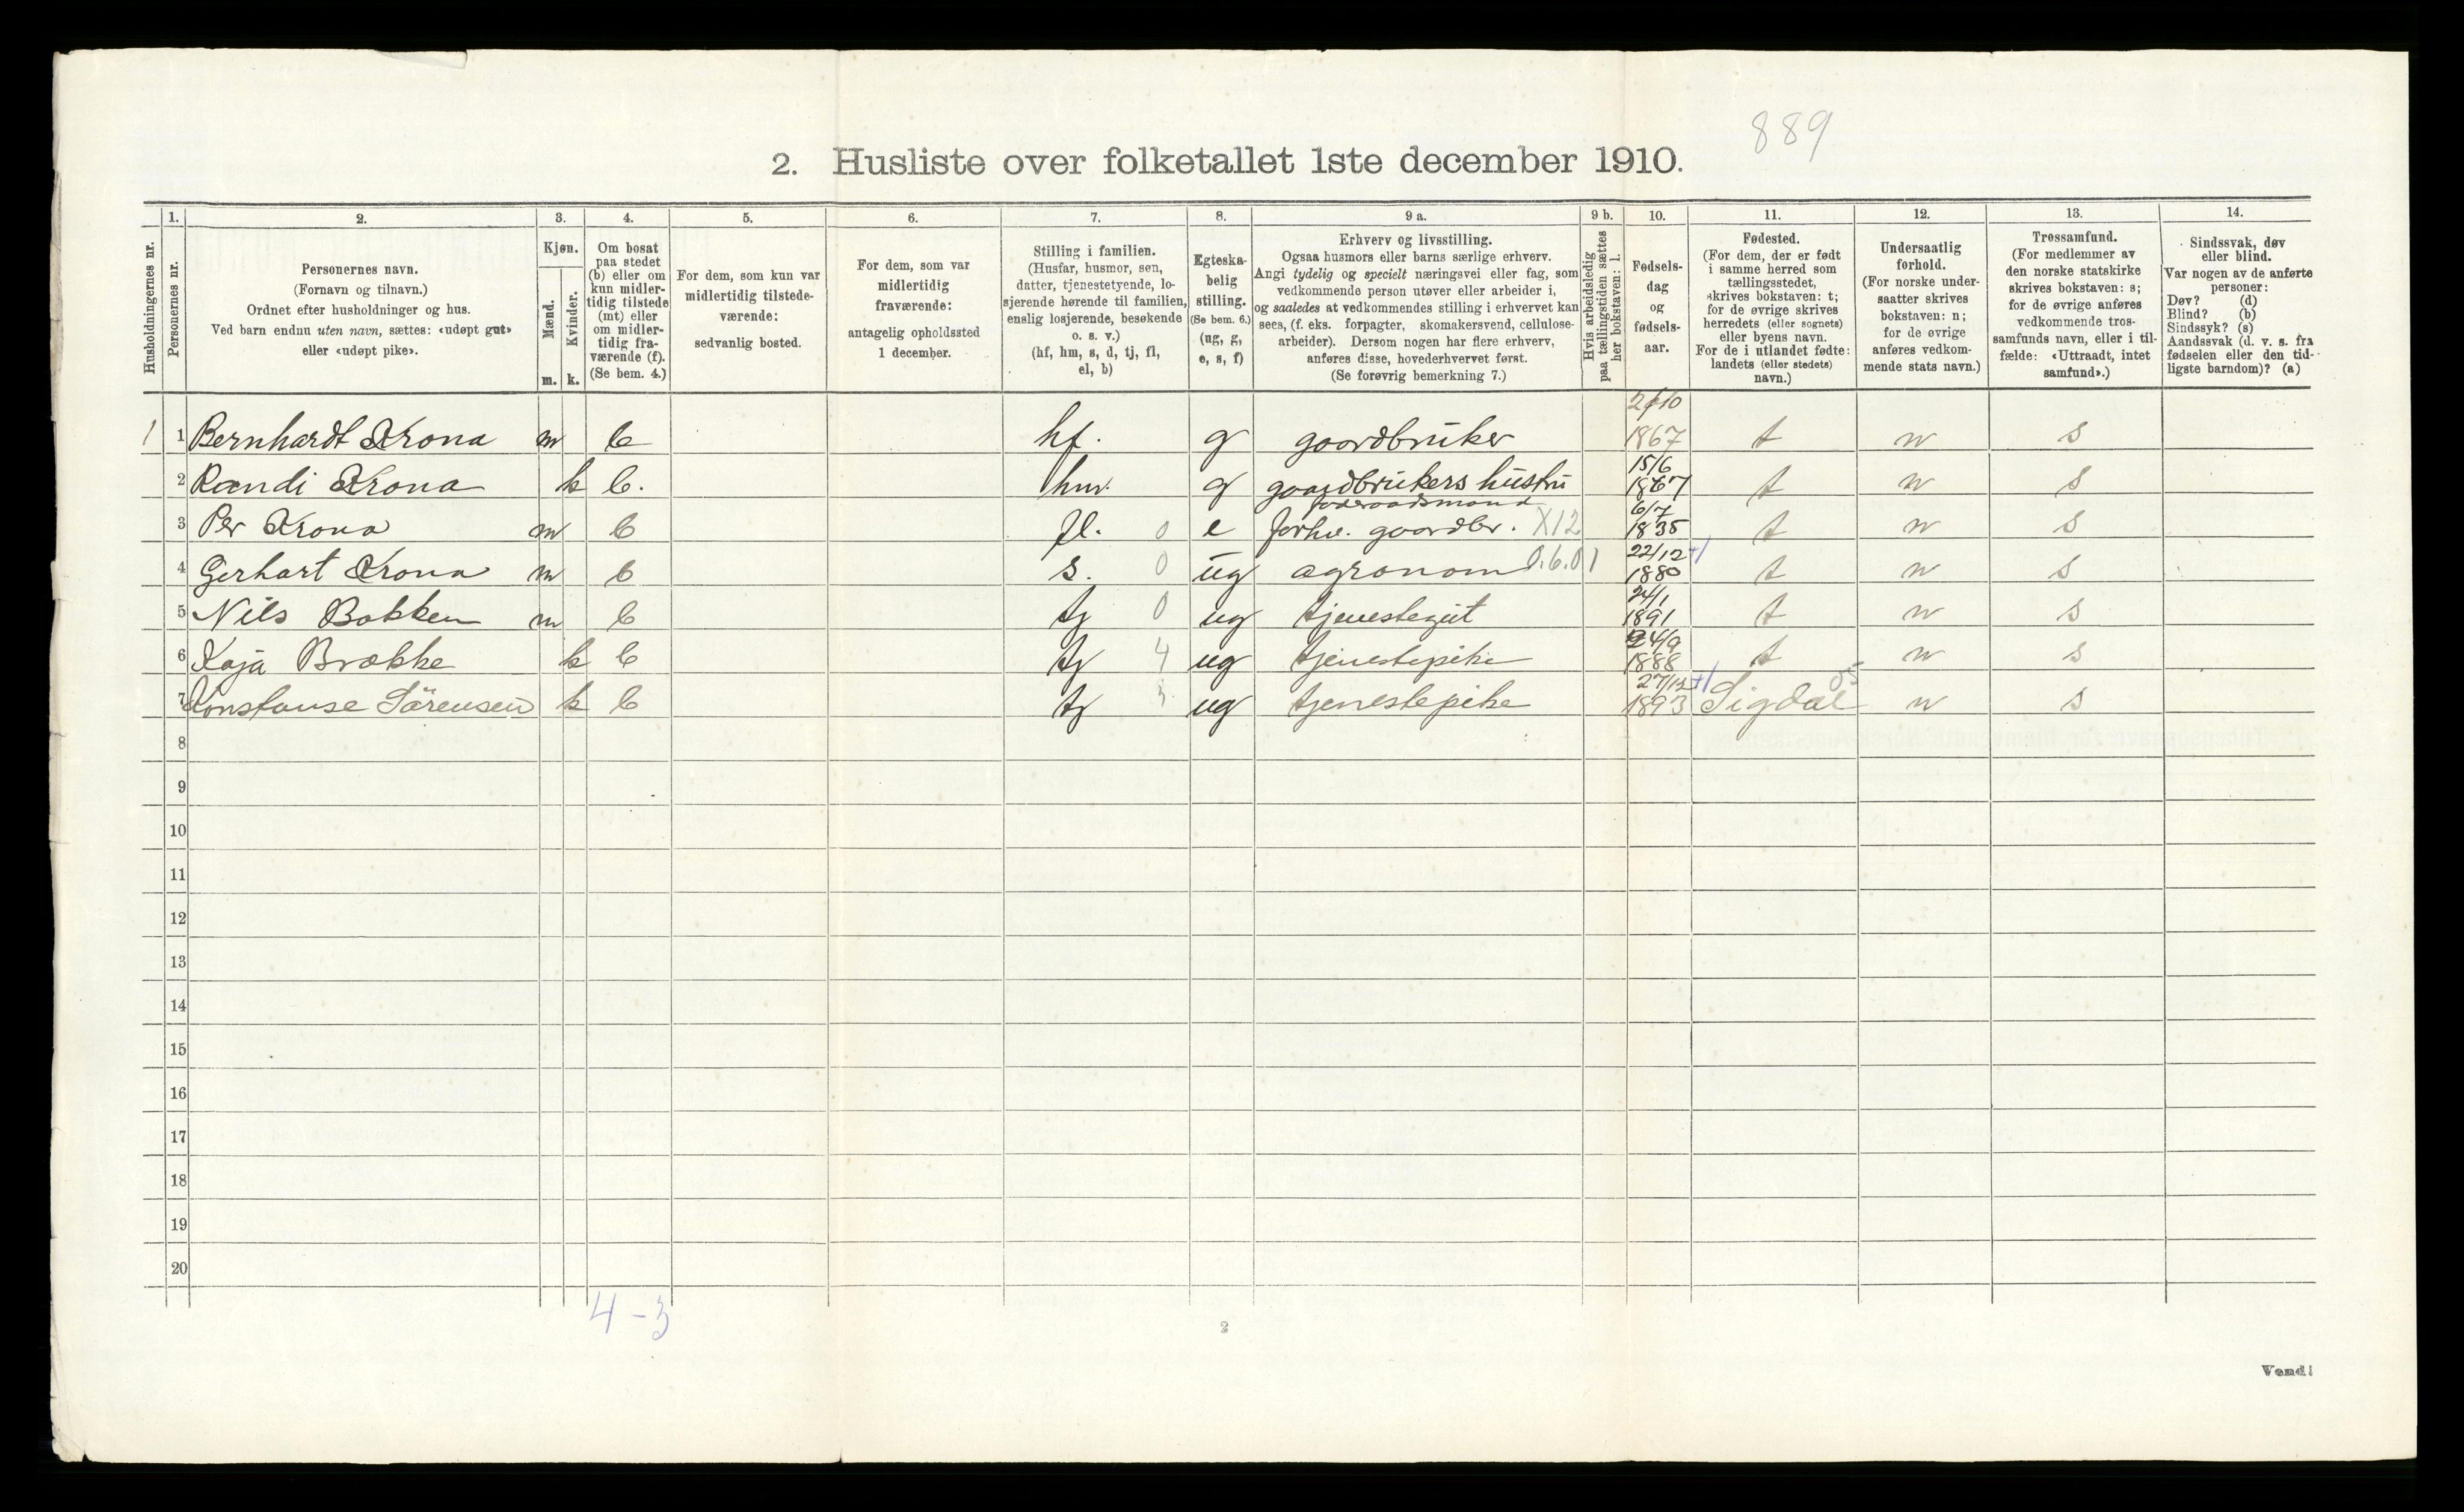 889
2. Husliste over folketallet 1ste december 1910.
Husholdningernes nr.
1.
Personernes nr.
2.
Personernes navn.
(Fornavn og tilnavn.)
Ordnet efter husholdninger og hus.
Ved barn endnu uten navn, sættes: «udøpt gut»
eller «udøpt pike».
3.
Kjøn.
Mænd.
Kvinder.
m. k.
4.
Om bosat
paa stedet
(b) eller om
kun midler-
tidig tilstede
(mt) eller
om midler-
tidig fra-
værende (f).
(Se bem. 4.)
5.
For dem, som kun var
midlertidig tilstede-
værende:
sedvanlig bosted.
6.
For dem, som var
midlertidig
fraværende:
antagelig opholdssted
1 december.
7.
Stilling i familien.
(Husfar, husmor, søn,
datter, tjenestetyende, lo-
sjerende hørende til familien,
enslig losjerende, besøkende
o. s. v.)
(hf, hm, s, d, tj, fl,
el, b)
8.
Egteska-
belig
stilling.
(Se bem. 6.)
(ug, g,
e, s, f)
9 a.
Erhverv og livsstilling.
Ogsaa husmors eller barns særlige erhverv.
Angi tydelig og specielt næringsvei eller fag, som
vedkommende person utøver eller arbeider i,
og saaledes at vedkommendes stilling i erhvervet kan
sees, (f. eks. forpagter, skomakersvend, cellulose-
arbeider). Dersom nogen har flere erhverv,
anføres disse, hovederhvervet først.
(Se forøvrig bemerkning 7.)
9 b.
Hvis arbeidsledig
paa tællingstiden sættes
her bokstaven: l.
10.
Fødsels-
dag
og
fødsels-
aar.
11.
Fødested.
(For dem, der er født
i samme herred som
tællingsstedet,
skrives bokstaven: t;
for de øvrige skrives
herredets (eller sognets)
eller byens navn.
For de i utlandet fødte:
landets (eller stedets)
navn.)
12.
Undersaatlig
forhold.
(For norske under-
saatter skrives
bokstaven: n;
for de øvrige
anføres vedkom-
mende stats navn.)
13.
Trossamfund.
(For medlemmer av
den norske statskirke
skrives bokstaven: s;
for de øvrige anføres
vedkommende tros-
samfunds navn, eller i til-
fælde: «Uttraadt, intet
samfund».)
14.
Sindssvak, døv
eller blind.
Var nogen av de anførte
personer:
Døv? (d)
Blind? (b)
Sindssyk? (s)
Aandssvak (d. v. s. fra
fødselen eller den tid-
ligste barndom)? (a)
1 1 Bernhardt Krona m b hf. g gaardbruker 2/10 1867 t n s
2 Randi Krona k b. hm. g gaardbrukers hustru 15/6 1867 t n s
føderaadsmand
3 Per Krona m b fl. 0 e forhv. gaardbr. X12 6/7 1835 t n s
4 Gerhart Krona m b s. 0 ug agronom 0.6.01 22/12 +1 1880 t n s
5 Nils Bakken m b tj 0 ug tjenestegut 24/1 1891 t n s
6 Kaja Brække k b tj 4 ug tjenestepike 24/9 1888 t n s
7 Konstanse Sörensen k b tj 3 ug tjenestepike 27/12 +1 1893 Sigdal 05 n s
8
9
10
11
12
13
14
15
16
17
18
19
20
4-3
2
Vend!